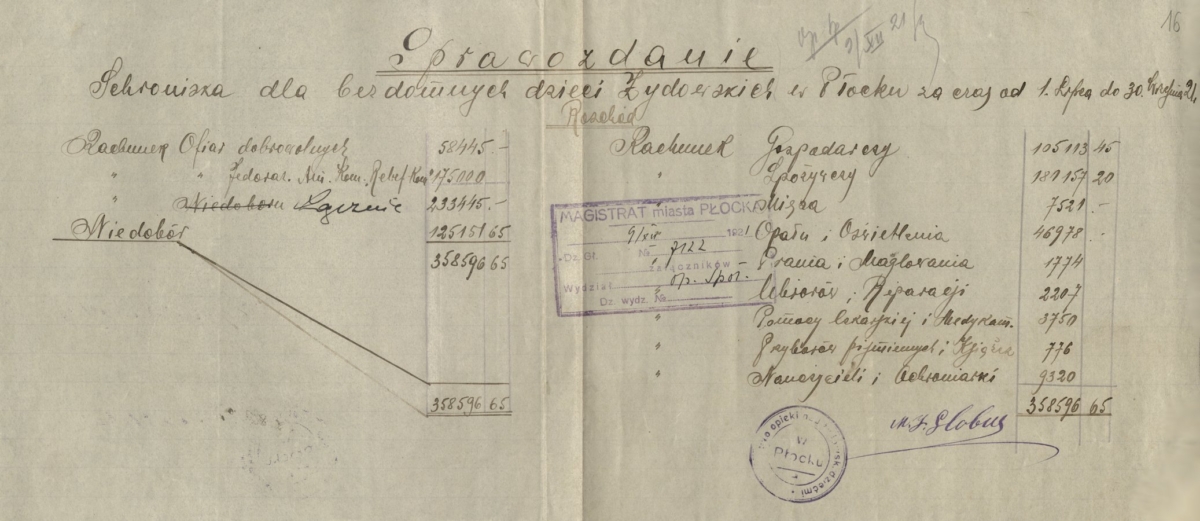 16
Op. Sp.
9/XII 21
Sprawozdanie
Schroniska dla bezdomnych dzieci Żydowskich w Płocku za czas od 1. Lipca do 30. Września 21.
Rozchód
Rachunek Ofiar dobrowolnych 58445.-
" " Federac. Am. Kom. 175000
" Niedoboru Łącznie 233445.-
Niedobór 125151 65
358596 65
358596 65
Rachunek Gospodarczy 105113 45
" Spożywczy 181157 20
Mięsa 7521.-
Opału i Oświetlenia 46978.-
Prania i Maglowania 1774
Ubiorów i Reparacji 2207
" Pomocy lekarskiej i Medykam. 3750
" Przyborów piśmiennych i Książek 776
" Nauczycieli i Ochroniarki 9320
358596 65
MAGISTRAT miasta PŁOCKA
9/XII 1921
Dz. Gł. № 7122
załączników -
Wydział Op. Społ.
Dz. wydz. №
M. J. Globus
w Płocku